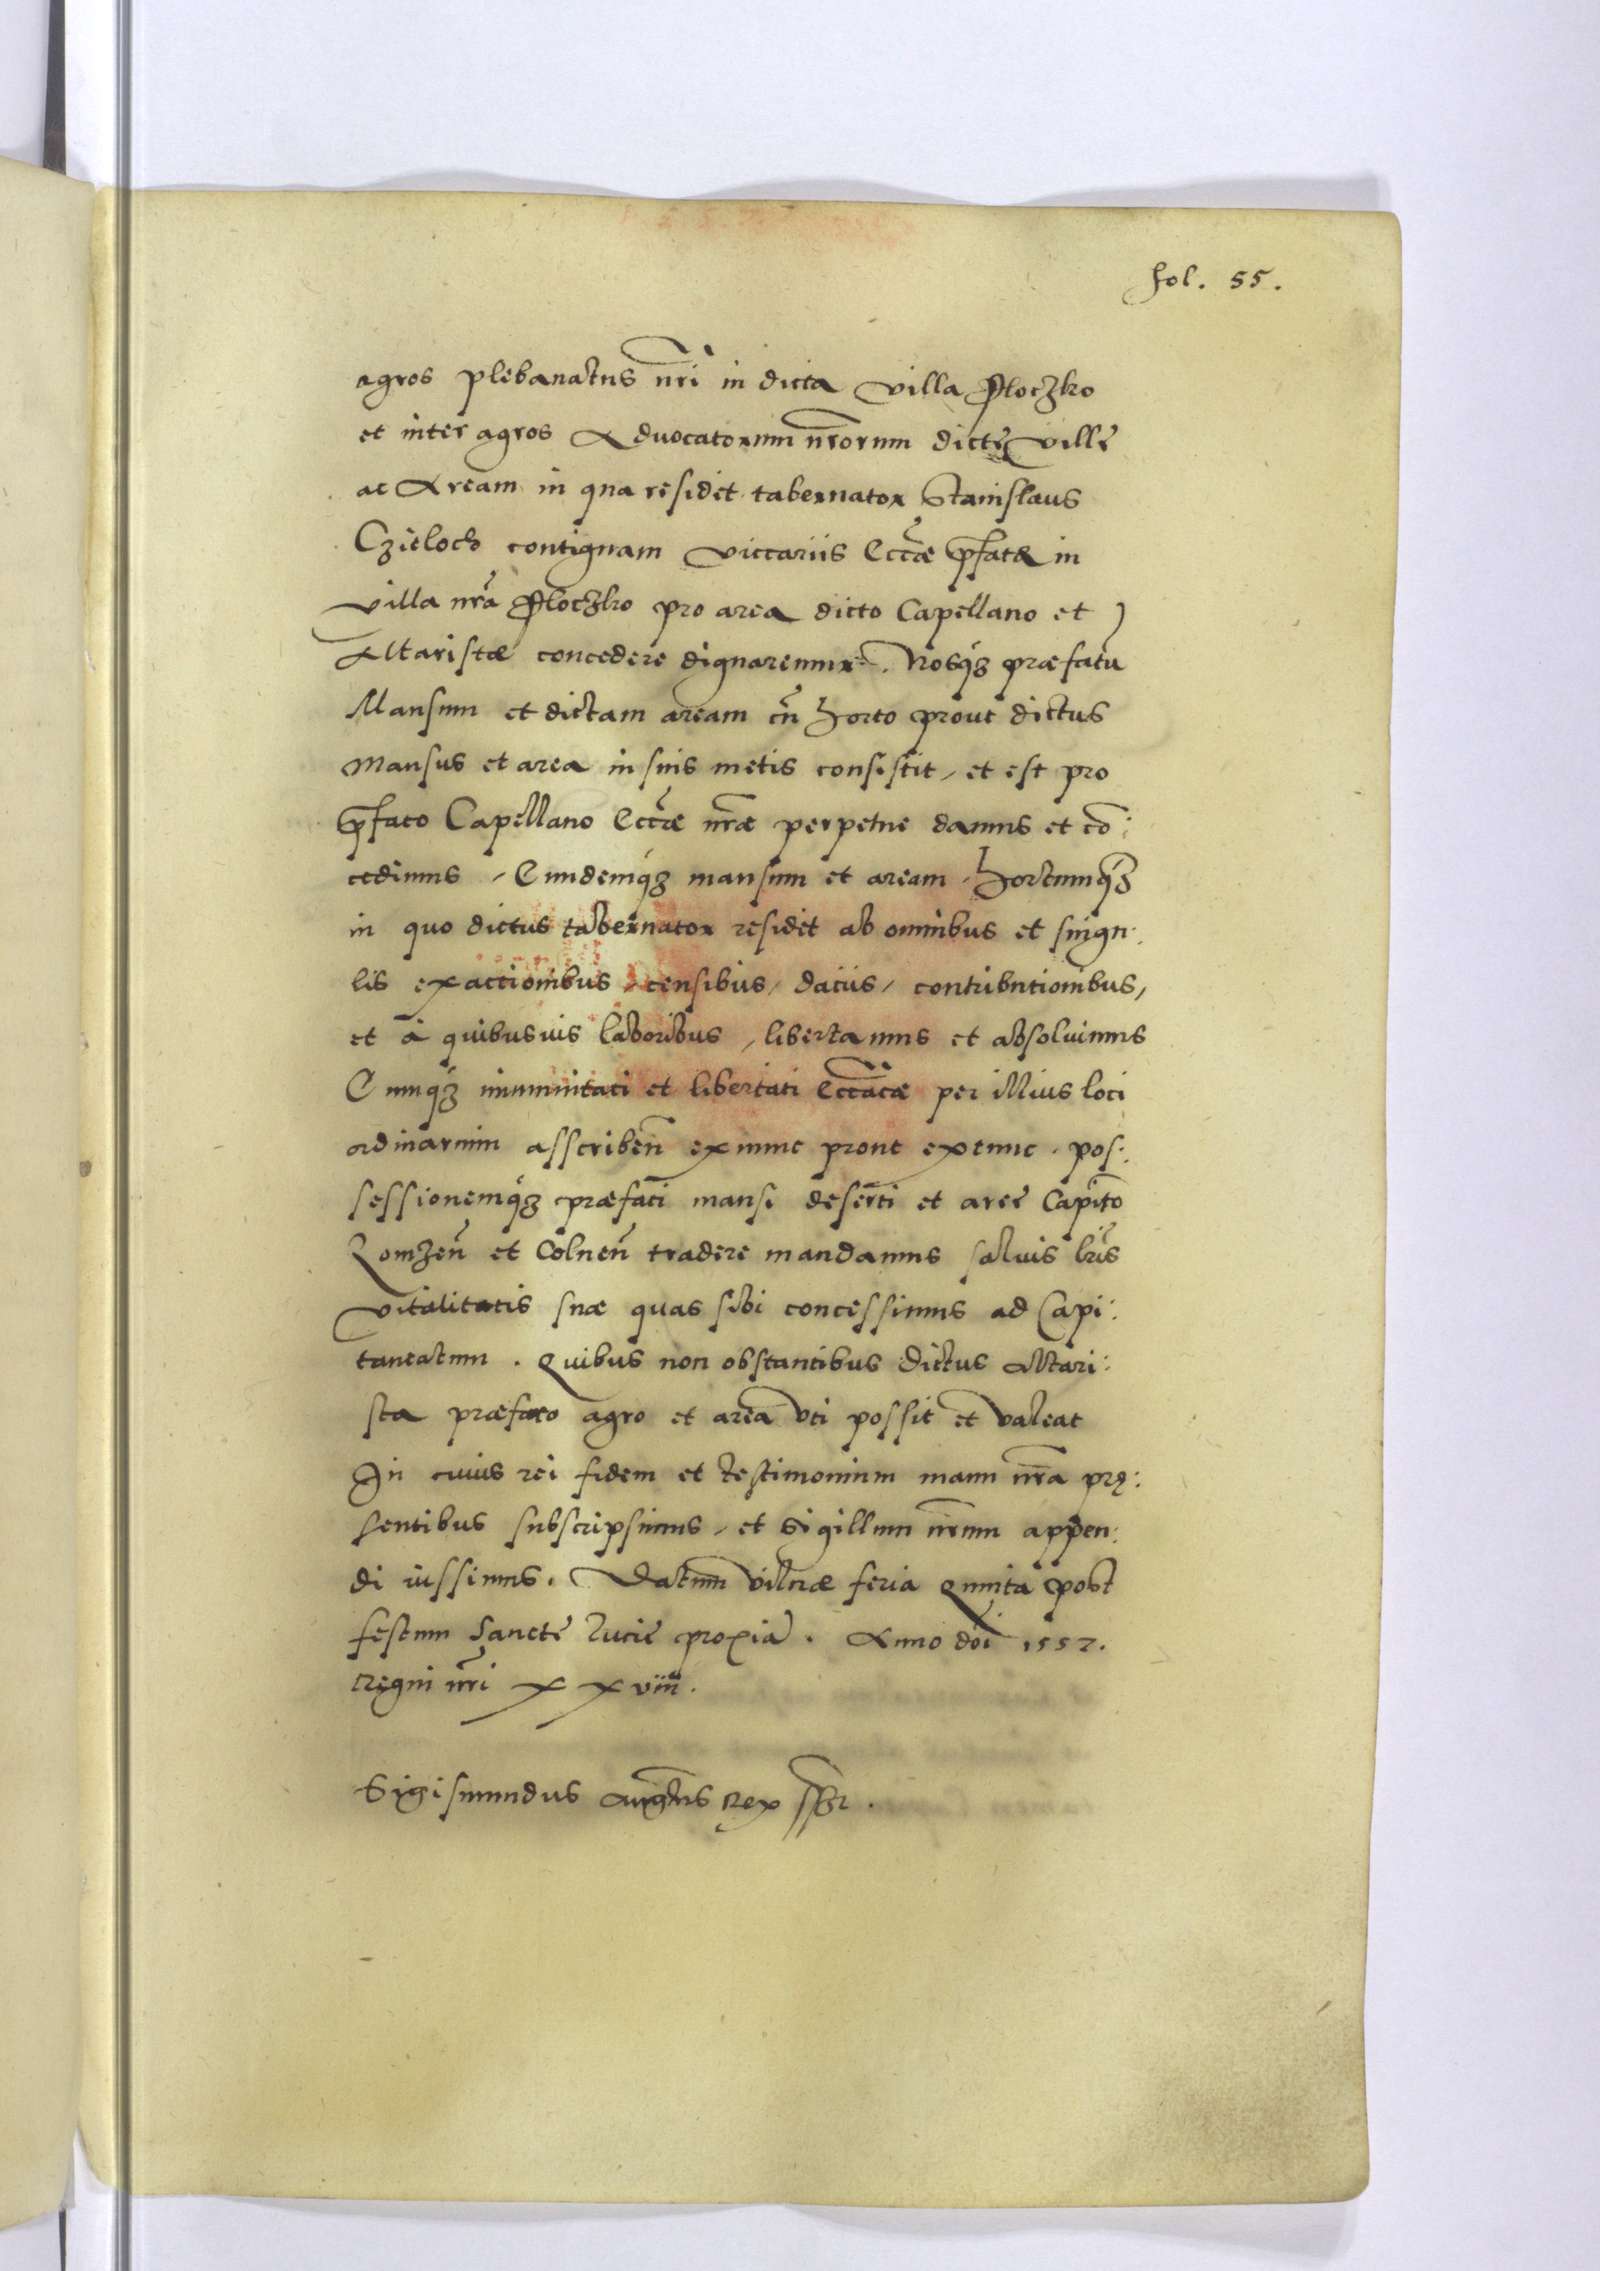 fol. 55.
agros plebanatus nr̃i in dicta villa Ploczko
et inter agros Aduocatorum nr̃orum dictę villę
ac Aream in qua residet tabernator Stanislaus
Czieloch contiguam viccariis Ecc̃æ p̃fatæ in
villa nr̃a Ploczko pro area dicto Capellano et
Altaristæ concedere dignaremur. Nosq́ꝫ præfatũ
Mansum et dictam aream cũ horto prout dictus
mansus et area in suis metis consistit, et est pro
p̃fato Capellano Ecc̃æ nr̃æ perpetue damus et cõ:
cedimus, Eundemq́ꝫ mansum et aream, hortumq́ꝫ
in quo dictus tabernator residet ab omnibus et singu:
lis exactionibus, censibus, daciis, contributionibus,
et à quibusuis laboribus, libertamus et absoluimus
Eumq́ꝫ immunitati et libertati Ecc̃acæ per illius loci
ordinarium asscribeñ ex nunc prout ex tunc. pos:
sessionemq́ꝫ præfati mansi deserti et areę Capit̃o
Lomzeñ et Colneñ tradere mandamus saluis lr̃is
vitalitatis suæ quas sibi concessimus ad Capi:
taneatum. Quibus non obstantibus dictus Altari:
sta præfato agro et area vti possit et valeat
In cuius rei fidem et testimonium manu nr̃a prę:
sentibus subscripsimus, et sigillum nr̃um appen:
di iussimus. Datum Vilnæ feria quinta post
festum Sanctę Lucię proxia. Anno dõi 1557.
Regni nr̃i XXviii.
Sigismundus Augũs Rex sßr.